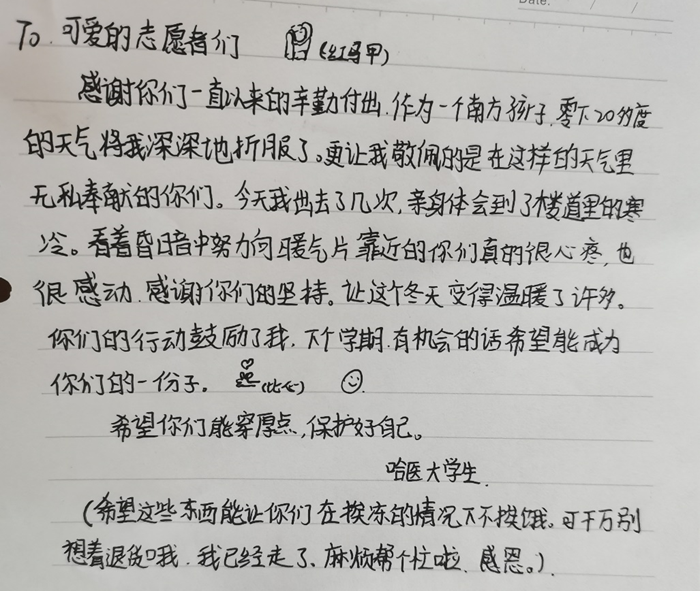 Date: / /
To. 可爱的志愿者们 (红马甲)
感谢你们一直以来的辛勤付出.作为一个南方孩子,零下20多度
的天气将我深深地折服了。更让我敬佩的是在这样的天气里
无私奉献的你们。今天我出去了几次,亲身体会到了楼道里的寒
冷。看着昏暗中努力向暖气片靠近的你们真的很心疼,也
很感动.感谢你们的坚持。让这个冬天变得温暖了许多。
你们的行动鼓励了我.下个学期.有机会的话希望能成为
你们的一份子。(比心)
希望你们能穿厚点,保护好自己。
哈医大学生.
(希望这些东西能让你们在挨冻的情况下不挨饿。可千万别
想着退货哦.我已经走了、麻烦帮个忙啦.感恩。).